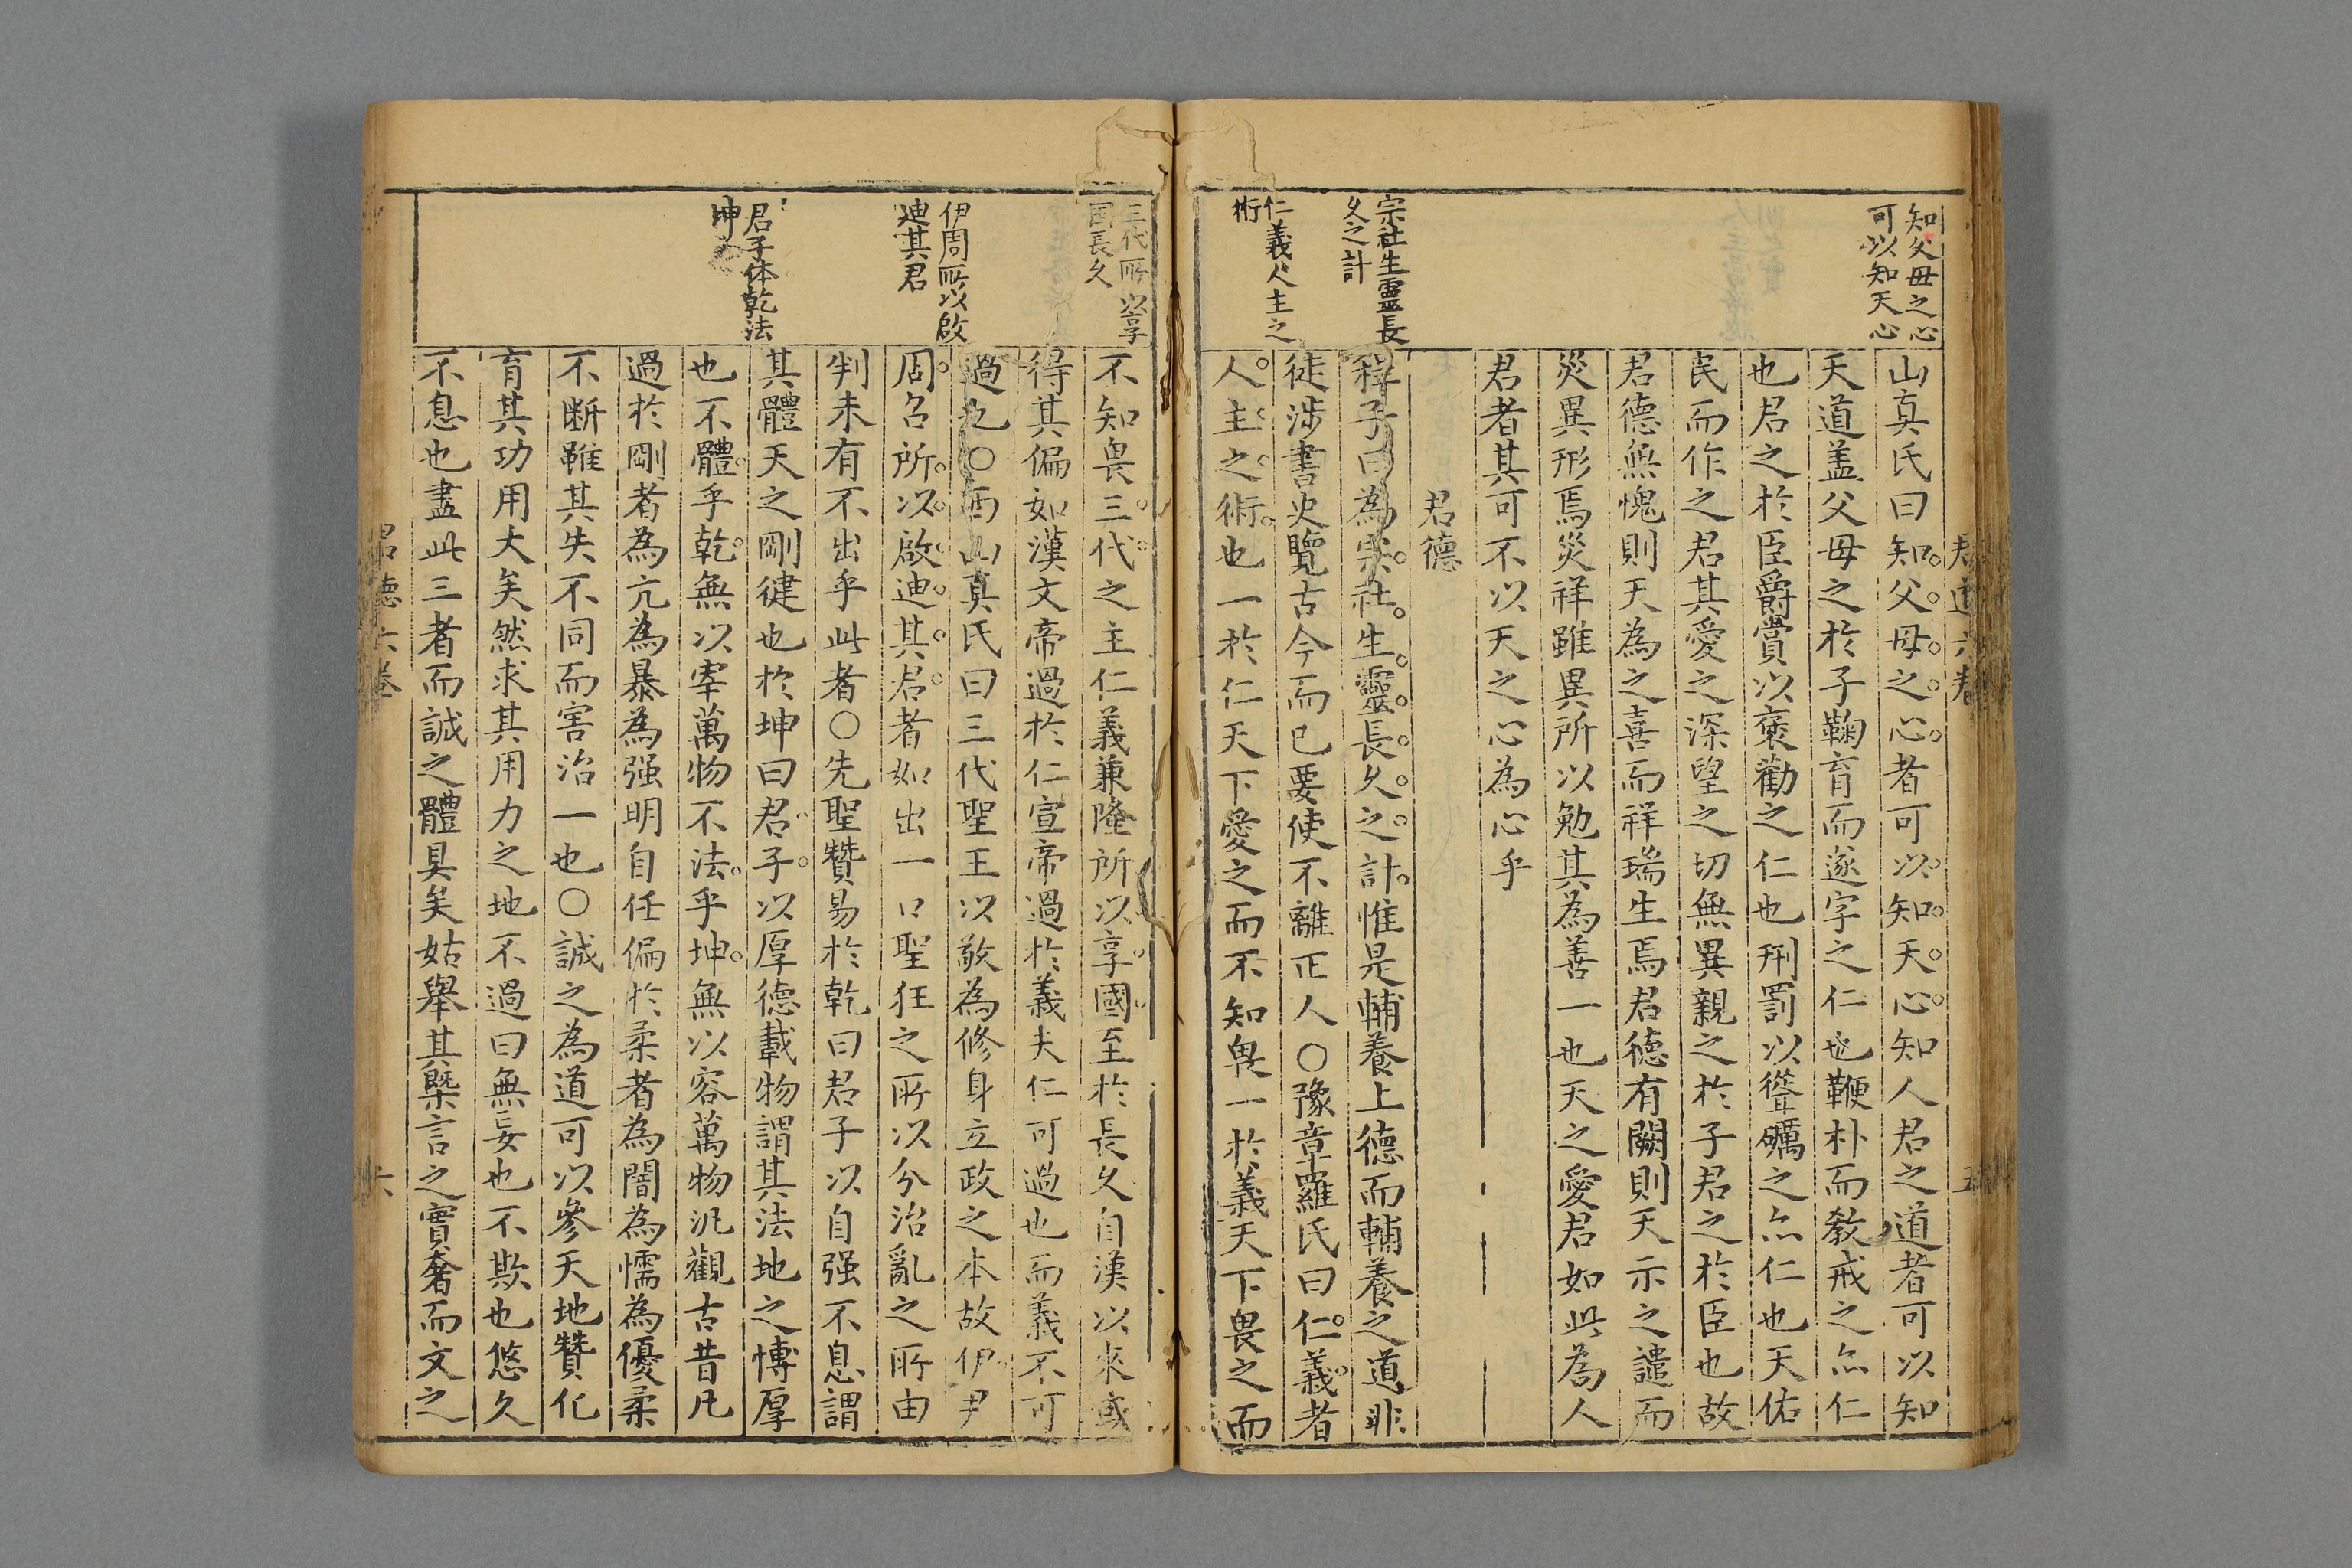 君道六卷
五
知父母之心
可以知天心
山真氏曰知父母之心者可以知天心知人君之道者可以知
天道盖父母之於子鞠育而遂字之仁也鞭朴而教戒之亦仁
也君之於臣爵賞以褒勸之仁也刑罰以聳礪之亦仁也天佑
民而作之君其愛之深望之切無異親之於子君之於臣也故
君德無愧則天為之喜而祥瑞生焉君德有闕則天示之譴而
災異形焉災祥雖異所以勉其為善一也天之愛君如此為人
君者其可不以天之心為心乎
君德
宗社生靈長
久之計
程子曰為宗社生靈長久之計惟是輔養上德而輔養之道非
徒涉書史覽古今而已要使不離正人○豫章羅氏曰仁義者
仁義人主之
術
人主之術也一於仁天下愛之而不知畏一於義天下畏之而
三代所以享
国長久
不知畏三代之主仁義兼隆所以享國至於長久自漢以來或
得其偏如漢文帝過於仁宣帝過於義夫仁可過也而義不可
過也○西山真氏曰三代聖王以敬為修身立政之本故伊尹
伊周所以啟
迪其君
周召所以啟迪其君者如出一口聖狂之所以分治亂之所由
判未有不出乎此者○先聖贊易於乾曰君子以自强不息謂
君子体乾法
坤
其體天之剛健也於坤曰君子以厚德載物謂其法地之博厚
也不體乎乾無以宰萬物不法乎坤無以容萬物汎觀古昔凡
過於剛者為亢為暴為强明自任偏於柔者為闇為懦為優柔
不断雖其失不同而害治一也○誠之為道可以參天地贊化
育其功用大矣然求其用力之地不過曰無妄也不欺也悠久
不息也盡此三者而誠之體具矣姑舉其槩言之實奢而文之
君德六卷
六